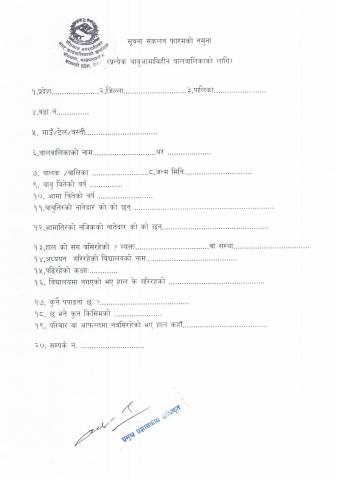 सूचना संकलन फारमको नमुना
(प्रत्येक बाबुआमाविहीन बालबालिकाको लागि)
१.प्रदेश....................२.जिल्ला....................३.पालिका....................
४.वडा नं............
५. गाउँ/टोल/वस्ती..........................
६.बालबालिकाको नाम......................थर ............
७. बालक /बालिका .....................८.जन्म मिति.....................
९. बाबु वितेको वर्ष ............
१०. आमा वितेको वर्ष ....................
११.बाबुतिरको नातेदार को को छन् ..............................
१२.आमातिरको नजिकको नातेदार को को छन्............................
१३.हाल को संग बसिरहेको ? व्यक्ति.........................वा संस्था.........................
१४.अध्ययन गरिरहेको विद्यालयको नाम..............................
१५.पढिरहेको कक्षा..............
१६. विद्यालयमा नगएको भए हाल के गरिरहको ........................
१७. कुनै अपाङ्गता छ ?..................
१८. छ भने कुन किसिमको ......................
१९. परिवार वा आफन्तमा नबसिरहेको भए हाल कहाँ............................
२०. सम्पर्क नं. ......................
प्रमुख प्रशासकीय अधिकृत